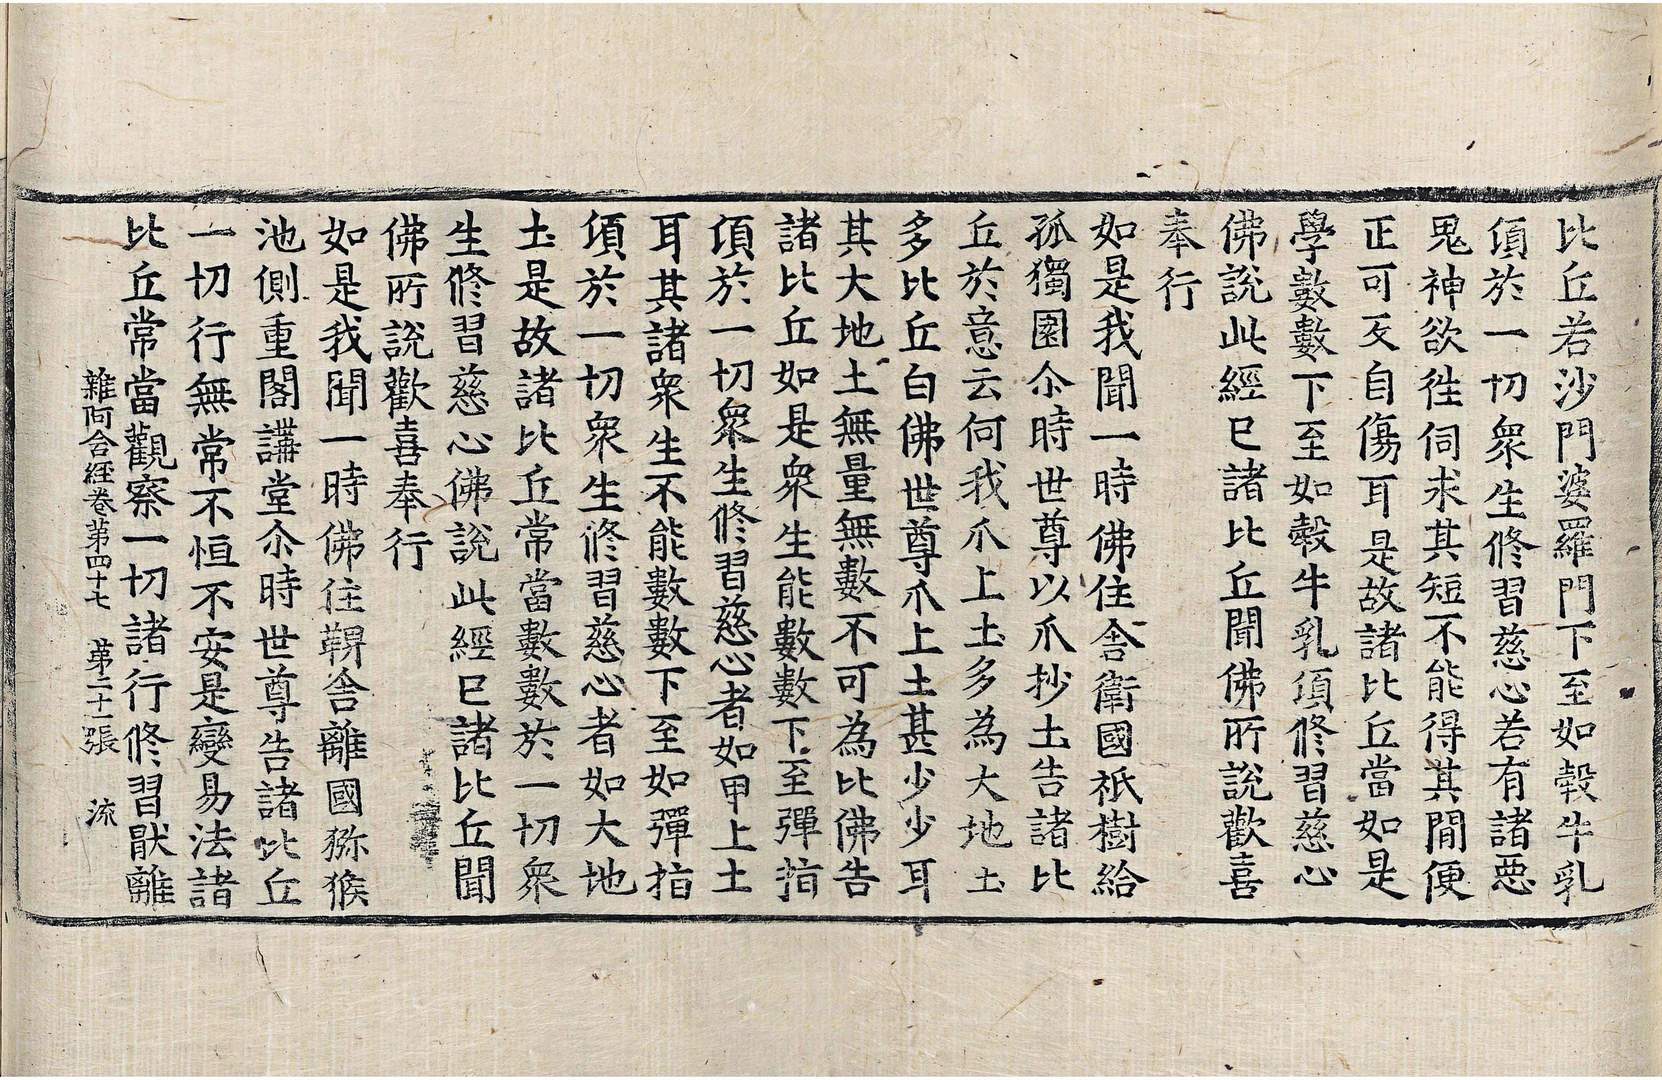 比丘若沙門婆羅門下至如𣫍牛乳
頃於一切衆生修習慈心若有諸惡
鬼神欲徃伺求其短不能得其閒便
正可反自傷耳是故諸比丘當如是
學數數下至如𣫍牛乳頃修習慈心
佛說此經已諸比丘聞佛所說歡喜
奉行
如是我聞一時佛住舍衛國祇樹給
孤獨園尒時世尊以爪抄土告諸比
丘於意云何我爪上土多為大地土
多比丘白佛世尊爪上土甚少少耳
其大地土無量無數不可為比佛告
諸比丘如是衆生能數數下至彈指
頃於一切衆生修習慈心者如甲上土
耳其諸衆生不能數數下至如彈指
頃於一切衆生修習慈心者如大地
土是故諸比丘常當數數於一切衆
生修習慈心佛說此經已諸比丘聞
佛所說歡喜奉行
如是我聞一時佛住鞞舍離國獼猴
池側重閣講堂尒時世尊告諸比丘
一切行無常不恒不安是變易法諸
比丘常當觀察一切諸行修習猒離
雜阿含經卷第四十七 第二十一張 流